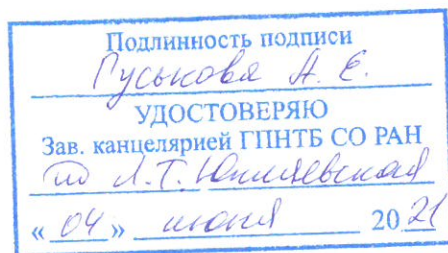 Подлинность подписи
Гуськова А. Е.
УДОСТОВЕРЯЮ
Зав. канцелярией ГПНТБ СО РАН
Л. Т.
« 04 » июня 20 21